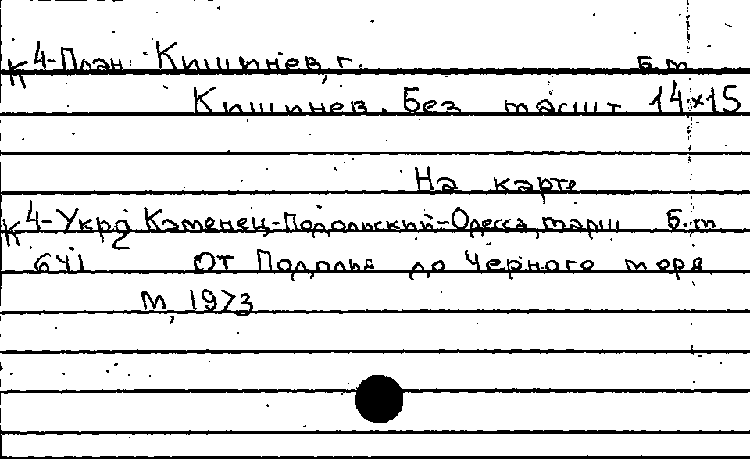 К 4-План Кишинев, г. Б.т
Кишинев. Без масшт 14×15
На карте
К 4-Укр2 Каменец-Подольский-Одесса, марш Б.т
641 От Подолья до Черного моря
М, 1973